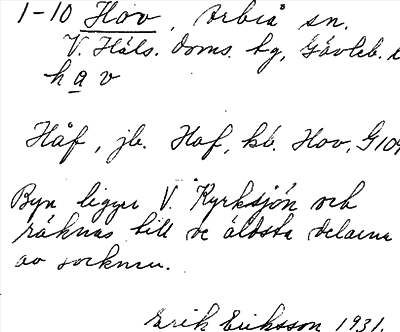 1-10 Hov, Arbrå sn.
V. Häls. doms. hg, Gävleb. l
hav
Håf, jb. Hof, kb. Hov, G 109
Byn ligger V. Kyrksjön och
räknas till de äldsta delarna
av socknen.
Erik Eriksson 1931.